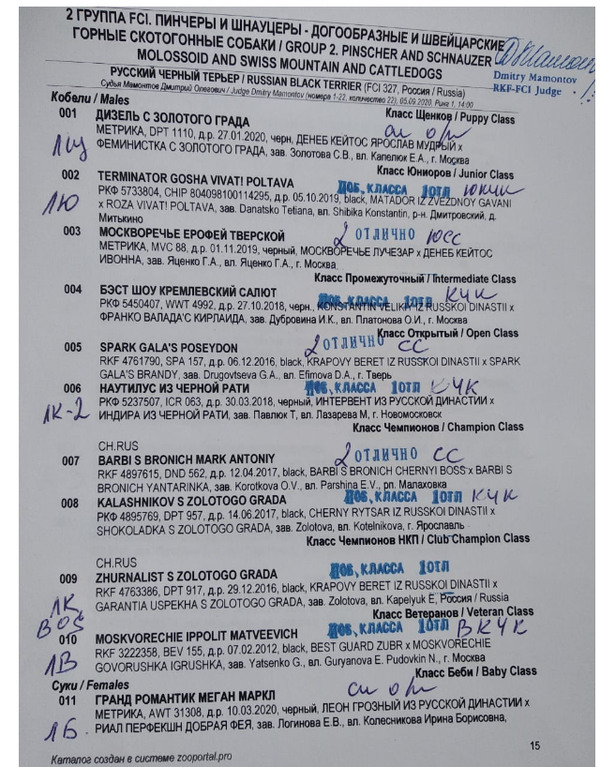 2 ГРУППА FCI. ПИНЧЕРЫ И ШНАУЦЕРЫ - ДОГООБРАЗНЫЕ И ШВЕЙЦАРСКИЕ
ГОРНЫЕ СКОТОГОННЫЕ СОБАКИ / GROUP 2. PINSCHER AND SCHNAUZER
MOLOSSOID AND SWISS MOUNTAIN AND CATTLEDOGS
Dmitry Mamontov
RKF-FCI Judge
РУССКИЙ ЧЕРНЫЙ ТЕРЬЕР / RUSSIAN BLACK TERRIER (FCI 327, Россия / Russia)
Судья Мамонтов Дмитрий Олегович / Judge Dmitry Mamontov (номера 1-22, количество 22), 05.09.2020, Ринг 1, 14:00
Кобели / Males
Класс Щенков / Puppy Class
001 ДИЗЕЛЬ С ЗОЛОТОГО ГРАДА
МЕТРИКА, DPT 1110, д.р. 27.01.2020, черн, ДЕНЕБ КЕЙТОС ЯРОСЛАВ МУДРЫЙ x
ФЕМИНИСТКА С ЗОЛОТОГО ГРАДА, зав. Золотова С.В., вл. Капелюк Е.А., г. Москва
ЛЩ
Класс Юниоров / Junior Class
002 TERMINATOR GOSHA VIVAT! POLTAVA ПОБ. КЛАССА 1ОТЛ
РКФ 5733804, CHIP 804098100114295, д.р. 05.10.2019, black, MATADOR IZ ZVEZDNOY GAVANI
x ROZA VIVAT! POLTAVA, зав. Danatsko Tetiana, вл. Shibika Konstantin, р-н. Дмитровский, д.
Митькино
ЛЮ
003 МОСКВОРЕЧЬЕ ЕРОФЕЙ ТВЕРСКОЙ 2 ОТЛИЧНО ЮСС
МЕТРИКА, MVC 88, д.р. 01.11.2019, черный, МОСКВОРЕЧЬЕ ЛУЧЕЗАР x ДЕНЕБ КЕЙТОС
ИВОННА, зав. Яценко Г.А., вл. Яценко Г.А., г. Москва
Класс Промежуточный / Intermediate Class
004 БЭСТ ШОУ КРЕМЛЕВСКИЙ САЛЮТ ПОБ. КЛАССА 1ОТЛ КЧК
РКФ 5450407, WWT 4992, д.р. 27.10.2018, черн, KONSTANTIN VELIKIY IZ RUSSKOI DINASTII x
ФРАНКО ВАЛАДА'С КИРЛАИДА, зав. Дубровина И.К., вл. Платонова О.И., г. Москва
Класс Открытый / Open Class
005 SPARK GALA'S POSEYDON 2 ОТЛИЧНО СС
RKF 4761790, SPA 157, д.р. 06.12.2016, black, KRAPOVY BERET IZ RUSSKOI DINASTII x SPARK
GALA'S BRANDY, зав. Drugovtseva G.A., вл. Efimova D.A., г. Тверь
006 НАУТИЛУС ИЗ ЧЕРНОЙ РАТИ ПОБ. КЛАССА 1ОТЛ КЧК
РКФ 5237507, ICR 063, д.р. 30.03.2018, черный, ИНТЕРВЕНТ ИЗ РУССКОЙ ДИНАСТИИ x
ИНДИРА ИЗ ЧЕРНОЙ РАТИ, зав. Павлюк Т, вл. Лазарева М, г. Новомосковск
ЛК-2
Класс Чемпионов / Champion Class
CH.RUS
007 BARBI S BRONICH MARK ANTONIY 2 ОТЛИЧНО СС
RKF 4897615, DND 562, д.р. 12.04.2017, black, BARBI S BRONICH CHERNYI BOSS x BARBI S
BRONICH YANTARINKA, зав. Korotkova O.V., вл. Parshina E.V., рп. Малаховка
008 KALASHNIKOV S ZOLOTOGO GRADA ПОБ. КЛАССА 1ОТЛ КЧК
РКФ 4895769, DPT 957, д.р. 14.06.2017, black, CHERNY RYTSAR IZ RUSSKOI DINASTII x
SHOKOLADKA S ZOLOTOGO GRADA, зав. Zolotova, вл. Kotelnikova, г. Ярославль
Класс Чемпионов НКП / Club Champion Class
CH.RUS
009 ZHURNALIST S ZOLOTOGO GRADA ПОБ. КЛАССА 1ОТЛ
RKF 4763386, DPT 917, д.р. 29.12.2016, black, KRAPOVY BERET IZ RUSSKOI DINASTII x
GARANTIA USPEKHA S ZOLOTOGO GRADA, зав. Zolotova, вл. Kapelyuk E, Россия / Russia
ЛК
Класс Ветеранов / Veteran Class
010 MOSKVORECHIE IPPOLIT MATVEEVICH ПОБ. КЛАССА 1ОТЛ ВКЧК
RKF 3222358, BEV 155, д.р. 07.02.2012, black, BEST GUARD ZUBR x MOSKVORECHIE
GOVORUSHKA IGRUSHKA, зав. Yatsenko G., вл. Guryanova E. Pudovkin N., г. Москва
ЛВ
Класс Беби / Baby Class
Суки / Females
011 ГРАНД РОМАНТИК МЕГАН МАРКЛ
МЕТРИКА, AWT 31308, д.р. 10.03.2020, черный, ЛЕОН ГРОЗНЫЙ ИЗ РУССКОЙ ДИНАСТИИ x
РИАЛ ПЕРФЕКШН ДОБРАЯ ФЕЯ, зав. Логинова Е.В., вл. Колесникова Ирина Борисовна,
ЛБ
15
Каталог создан в системе zooportal.pro